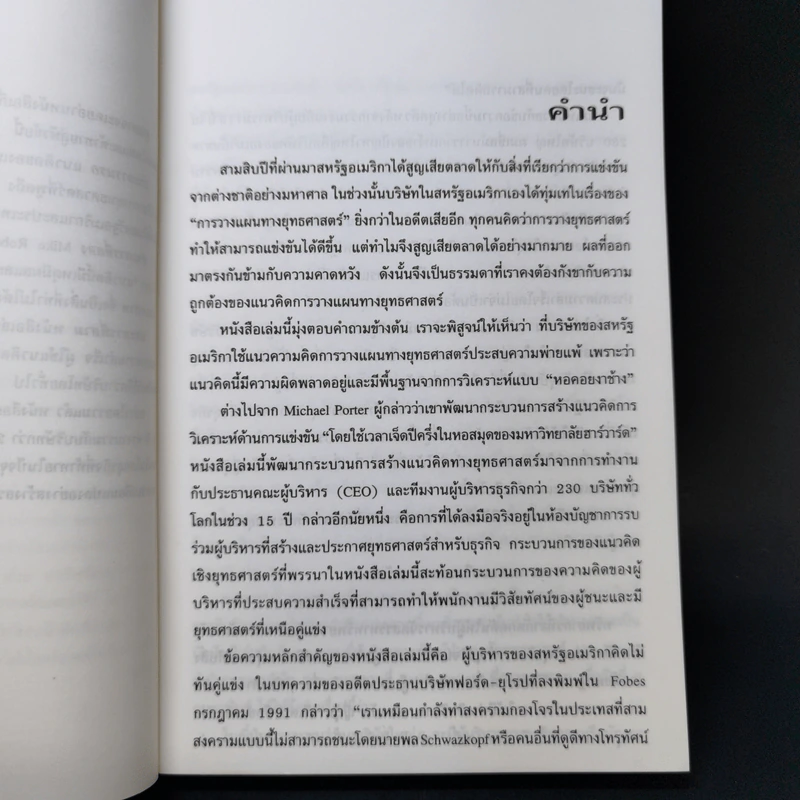 คำนำ
สามสิบปีที่ผ่านมาสหรัฐอเมริกาได้สูญเสียตลาดให้กับสิ่งที่เรียกว่าการแข่งขัน
จากต่างชาติอย่างมหาศาล ในช่วงนั้นบริษัทในสหรัฐอเมริกาเองได้ทุ่มเทในเรื่องของ
“การวางแผนทางยุทธศาสตร์” ยิ่งกว่าในอดีตเสียอีก ทุกคนคิดว่าการวางยุทธศาสตร์
ทำให้สามารถแข่งขันได้ดีขึ้น แต่ทำไมจึงสูญเสียตลาดได้อย่างมากมาย ผลที่ออก
มาตรงกันข้ามกับความคาดหวัง ดังนั้นจึงเป็นธรรมดาที่เราคงต้องกังขากับความ
ถูกต้องของแนวคิดการวางแผนทางยุทธศาสตร์
หนังสือเล่มนี้มุ่งตอบคำถามข้างต้น เราจะพิสูจน์ให้เห็นว่า ที่บริษัทของสหรัฐ
อเมริกาใช้แนวความคิดการวางแผนทางยุทธศาสตร์ประสบความพ่ายแพ้ เพราะว่า
แนวคิดนี้มีความผิดพลาดอยู่และมีพื้นฐานจากการวิเคราะห์แบบ “หอคอยงาช้าง”
ต่างไปจาก Michael Porter ผู้กล่าวว่าเขาพัฒนากระบวนการสร้างแนวคิดการ
วิเคราะห์ด้านการแข่งขัน “โดยใช้เวลาเจ็ดปีครึ่งในหอสมุดของมหาวิทยาลัยฮาร์วาร์ด”
หนังสือเล่มนี้พัฒนากระบวนการสร้างแนวคิดทางยุทธศาสตร์มาจากการทำงาน
กับประธานคณะผู้บริหาร (CEO) และทีมงานผู้บริหารธุรกิจกว่า 230 บริษัททั่ว
โลกในช่วง 15 ปี กล่าวอีกนัยหนึ่ง คือการที่ได้ลงมือจริงอยู่ในห้องบัญชาการรบ
ร่วมผู้บริหารที่สร้างและประกาศยุทธศาสตร์สำหรับธุรกิจ กระบวนการของแนวคิด
เชิงยุทธศาสตร์ที่พรรนาในหนังสือเล่มนี้สะท้อนกระบวนการของความคิดของผู้
บริหารที่ประสบความสำเร็จที่สามารถทำให้พนักงานมีวิสัยทัศน์ของผู้ชนะและมี
ยุทธศาสตร์ที่เหนือคู่แข่ง
ข้อความหลักสำคัญของหนังสือเล่มนี้คือ ผู้บริหารของสหรัฐอเมริกาคิดไม่
ทันคู่แข่ง ในบทความของอดีตประธานบริษัทฟอร์ด-ยุโรปที่ลงพิมพ์ใน Fobes
กรกฎาคม 1991 กล่าวว่า “เราเหมือนกำลังทำสงครามกองโจรในประเทศที่สาม
สงครามแบบนี้ไม่สามารถชนะโดยนายพล Schwazkopf หรือคนอื่นที่ดูดีทางโทรทัศน์